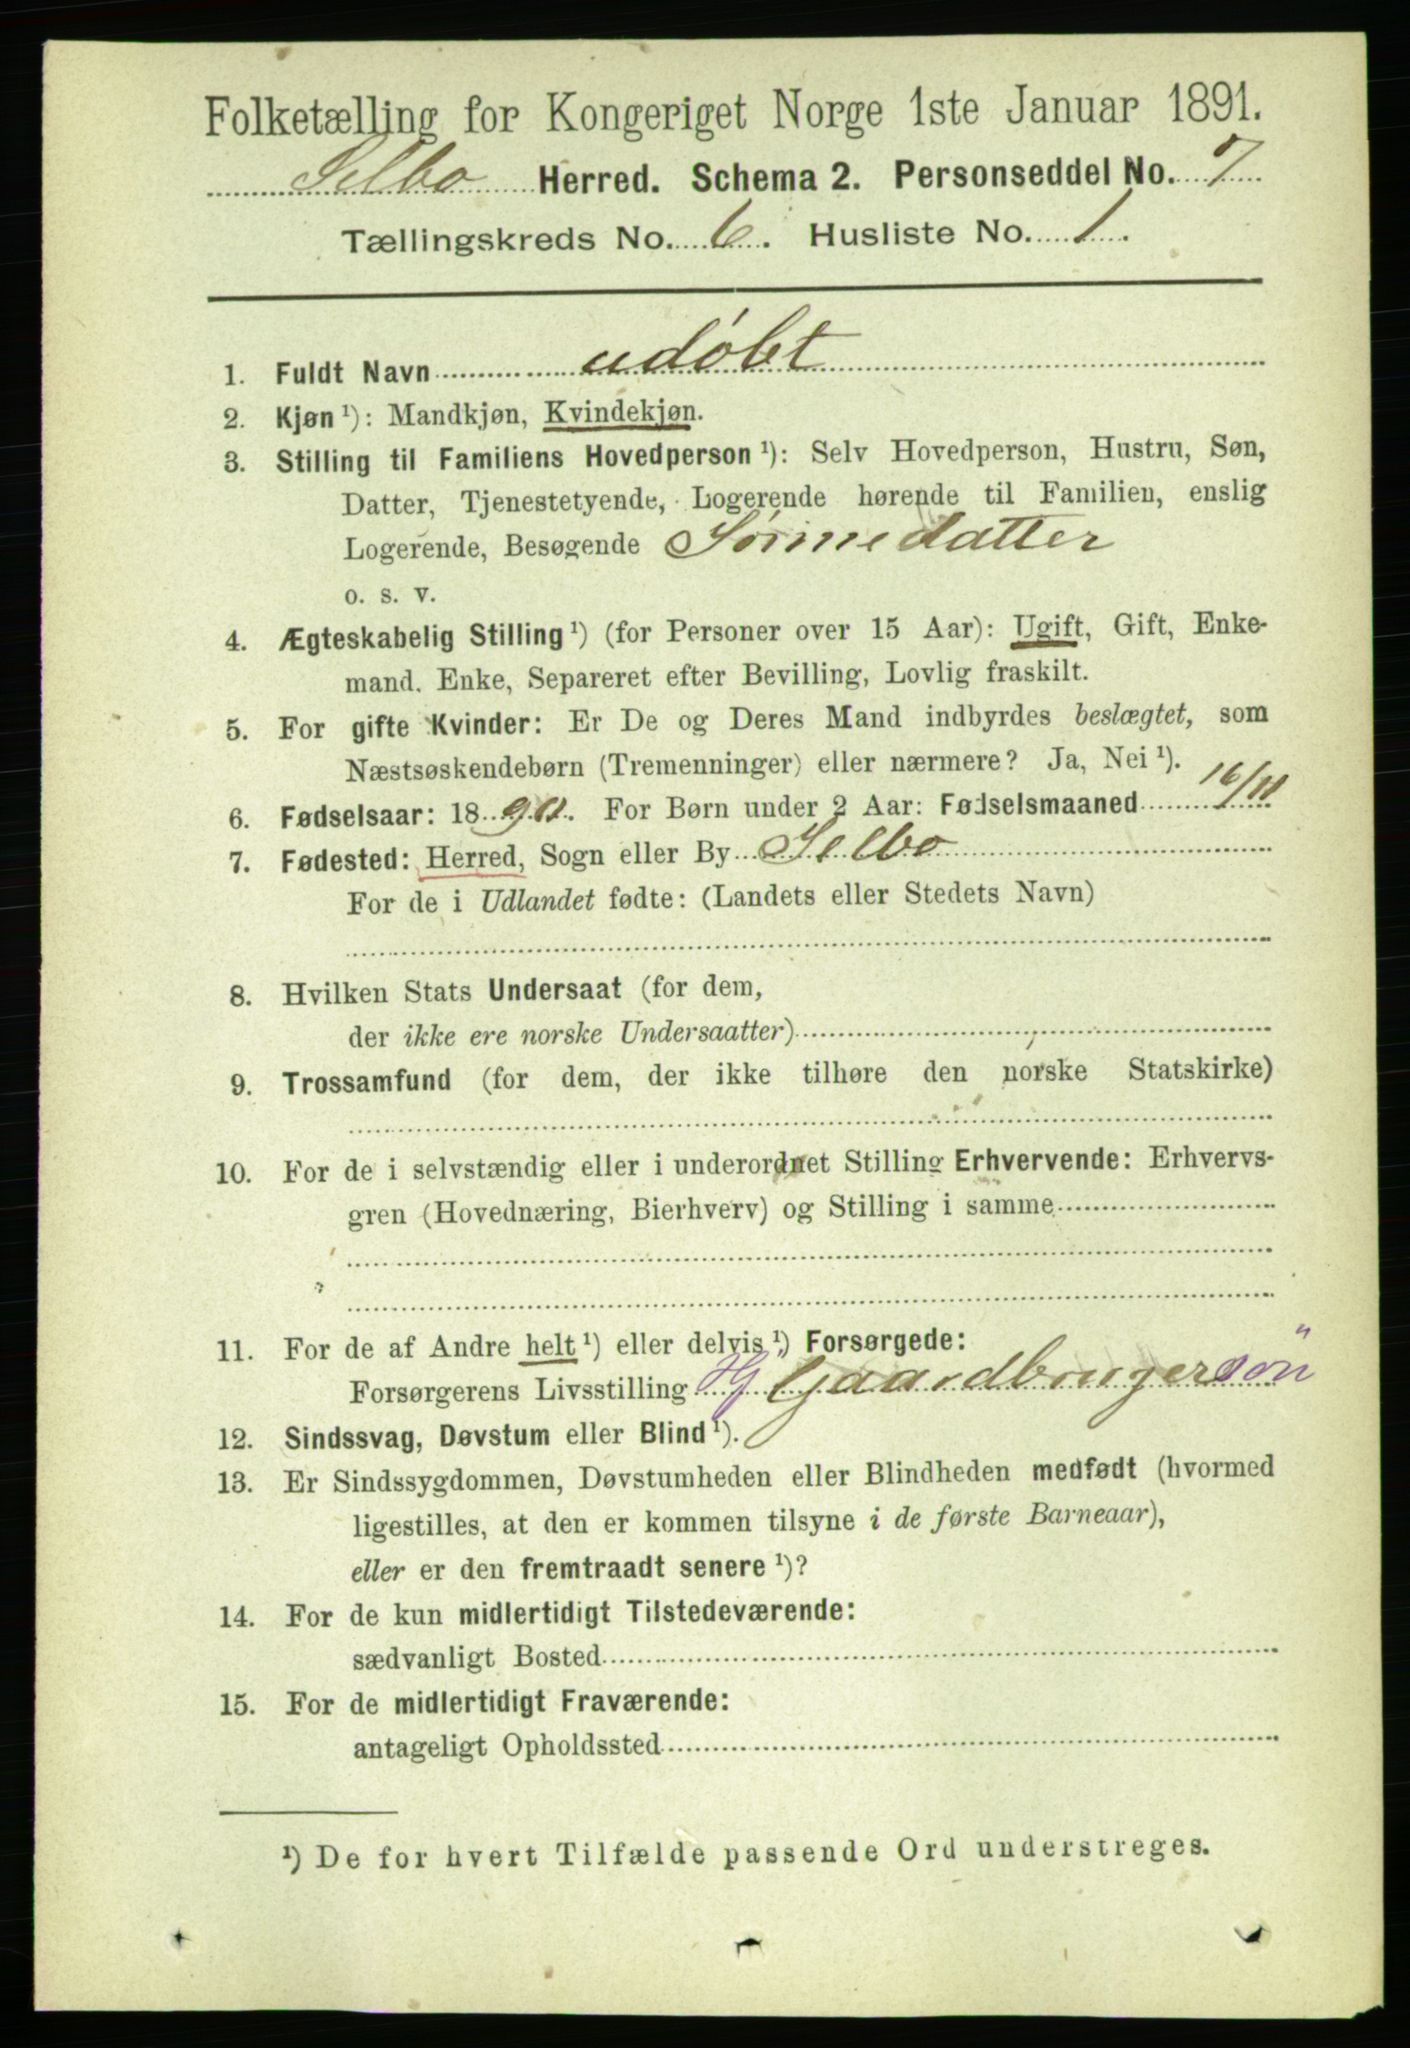 Folketælling for Kongeriget Norge 1ste Januar 1891.
Selbo Herred. Schema 2. Personseddel No. 7
Tællingskreds No. 6. Husliste No. 1.
1. Fuldt Navn udøbt
2. Kjøn ¹): Mandkjøn, Kvindekjøn.
3. Stilling til Familiens Hovedperson ¹): Selv Hovedperson, Hustru, Søn,
Datter, Tjenestetyende, Logerende hørende til Familien, enslig
Logerende, Besøgende Sønnedatter
o. s. v.
4. Ægteskabelig Stilling ¹) (for Personer over 15 Aar): Ugift, Gift, Enke-
mand. Enke, Separeret efter Bevilling, Lovlig fraskilt.
5. For gifte Kvinder: Er De og Deres Mand indbyrdes beslægtet, som
Næstsøskendebørn (Tremenninger) eller nærmere? Ja, Nei ¹).
6. Fødselsaar: 1890. For Børn under 2 Aar: Fødselsmaaned 16/11
7. Fødested: Herred, Sogn eller By Selbo
For de i Udlandet fødte: (Landets eller Stedets Navn)
8. Hvilken Stats Undersaat (for dem,
der ikke ere norske Undersaatter)
9. Trossamfund (for dem, der ikke tilhøre den norske Statskirke)
10. For de i selvstændig eller i underordnet Stilling Erhvervende: Erhvervs-
gren (Hovednæring, Bierhverv) og Stilling i samme
11. For de af Andre helt ¹) eller delvis ¹) Forsørgede:
Forsørgerens Livsstilling Hj Gaardbrugersön
12. Sindssvag, Døvstum eller Blind ¹).
13. Er Sindssygdommen, Døvstumheden eller Blindheden medfødt (hvormed
ligestilles, at den er kommen tilsyne i de første Barneaar),
eller er den fremtraadt senere ¹)?
14. For de kun midlertidigt Tilstedeværende:
sædvanligt Bosted
15. For de midlertidigt Fraværende:
antageligt Opholdssted
¹) De for hvert Tilfælde passende Ord understreges.